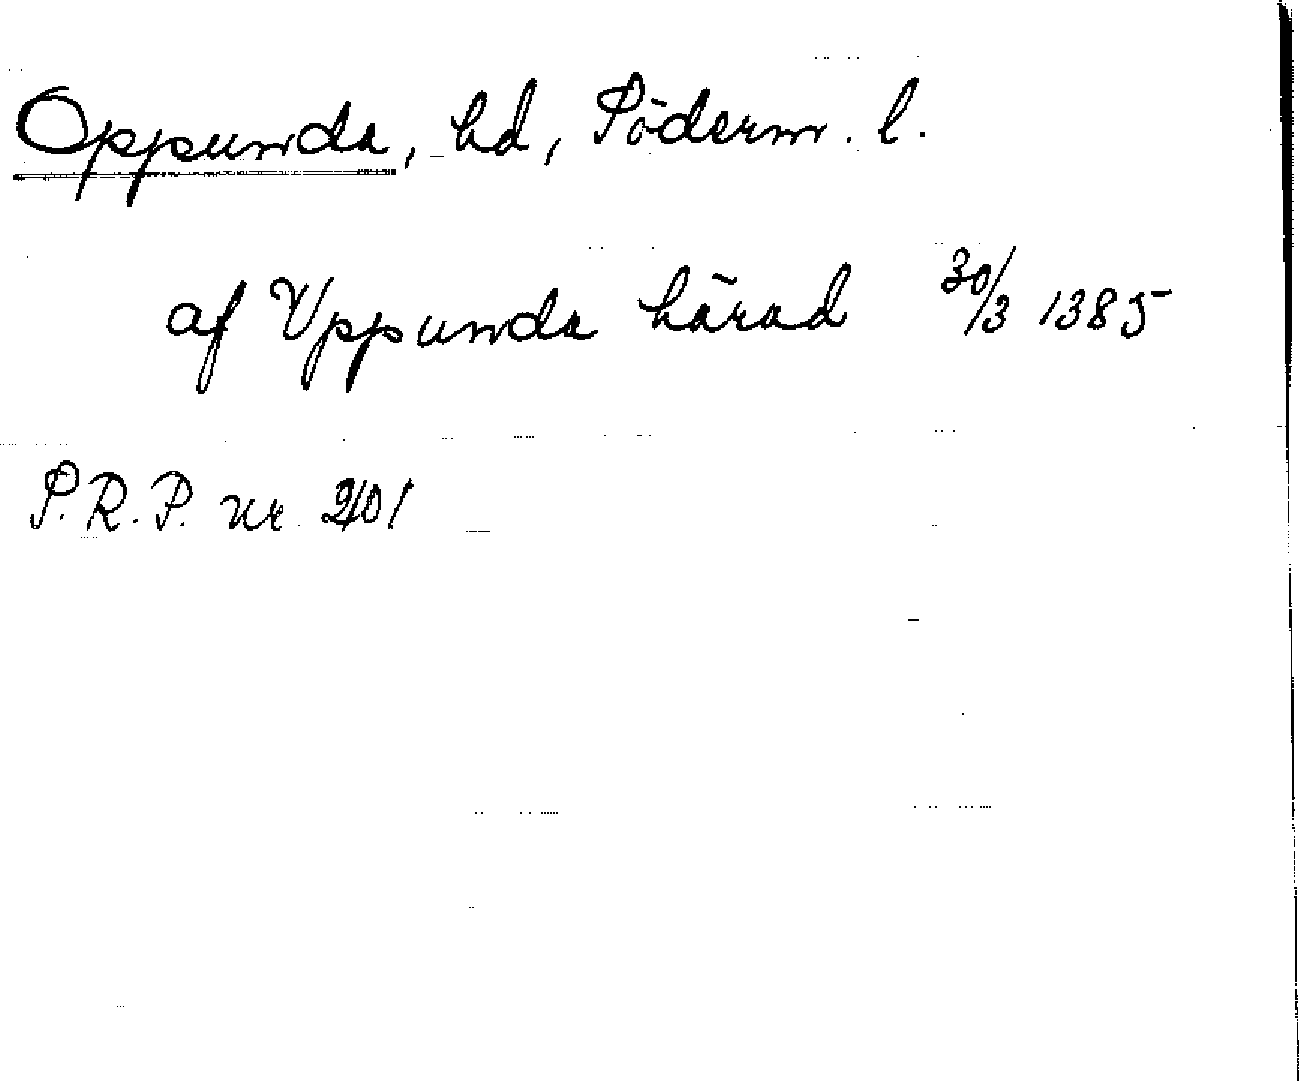 Oppunda, hd, Söderm. l.
af Vppunda härad 30/3 1385
P.R.P. nr